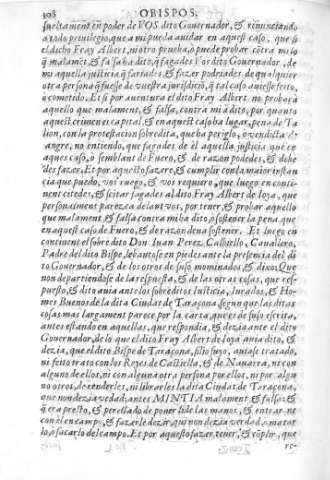 308 OBISPOS,
sueltament en poder de VOS dito Governador, & renunciando
a todo privilegio, que a mi pueda aiudar en aquest caso, que si
el dicho Fray Albert, ni otro prueba, o puede probar contra mi lo
q malament, & falsa ha dito, q fagades Vos dito Governador, de
mi aquella justicia q fariades, & fazer podriades de qualquier
otra persona q fuesse de vuestra jurisdició, q tal caso aviesse feito,
o cometido. Et si por aventura el dito Fray Albert no probará
aquello que malament, & falsa, contra mi á dito, por quanto
aquest crimen es capital, & en aquest caso ha lugar, pena de Ta
lion, con la protestacion sobredita, que ha periglo, o vendicta de
angre, no entiendo, que fagades de él aquella justicia que en
aques caso, o semblant de Fuero, & de razon podedes, & debe
des fazer. Et por aquesto fazer, & cumplir conta maior instan
cia que puedo, vni ruego, & vos requiero, que luego en conti
nent citedes, & scitar fagades al dito Fray Albert de Ioya, que
personalment parezca delant vos, por tener, & probar aquello
que malament, & falsa contra mi ha dito, o sostener la pena que
en aquest caso de Fuero, & de razon deva sostener. Et luego en
continent el sobre dito Don Juan Perez Calbillo, Cavallero,
Padre del dito Bispe, lebantose en piedes ante la presencia del di
to Governador, & de los otros de suso nominados & dixo: Que
non departiendose de la respuesta, & de las otras cosas, que res
puesto, & dito avia ante los sobreditos Iusticia, Iurados, & Ho-
mes Buenos de la dita Ciudat de Taraçona, segun que las ditas
cosas mas largament parece por la carta, que es de suso escrita,
antes estando en aquellas, que respondia, & dezia ante el dito
Governador, de lo que el dito Fray Albert de Ioya avia dito, &
dezia, que el dito Bispe de Taraçona, fillo suyo, aviase tratado,
ni feito trato con los Reyes de Castiella, & de Navarra, ni con
alguno de ellos, ni con alguna otra persona por ellos, ni por algu
no otros, de renderles, ni librarles la dita Ciudat de Taraçona,
que non dezia vedad; antes MINTIA malament, & falsa: &
q era presto, & perellado de poner si de las manos, & entrar-ne
con él en campo, & fazerle dezir, qui non dezia verdad, o matar
lo, o sacarlo del campo. Et por aquesto fazer, tener, & complir, que
re-